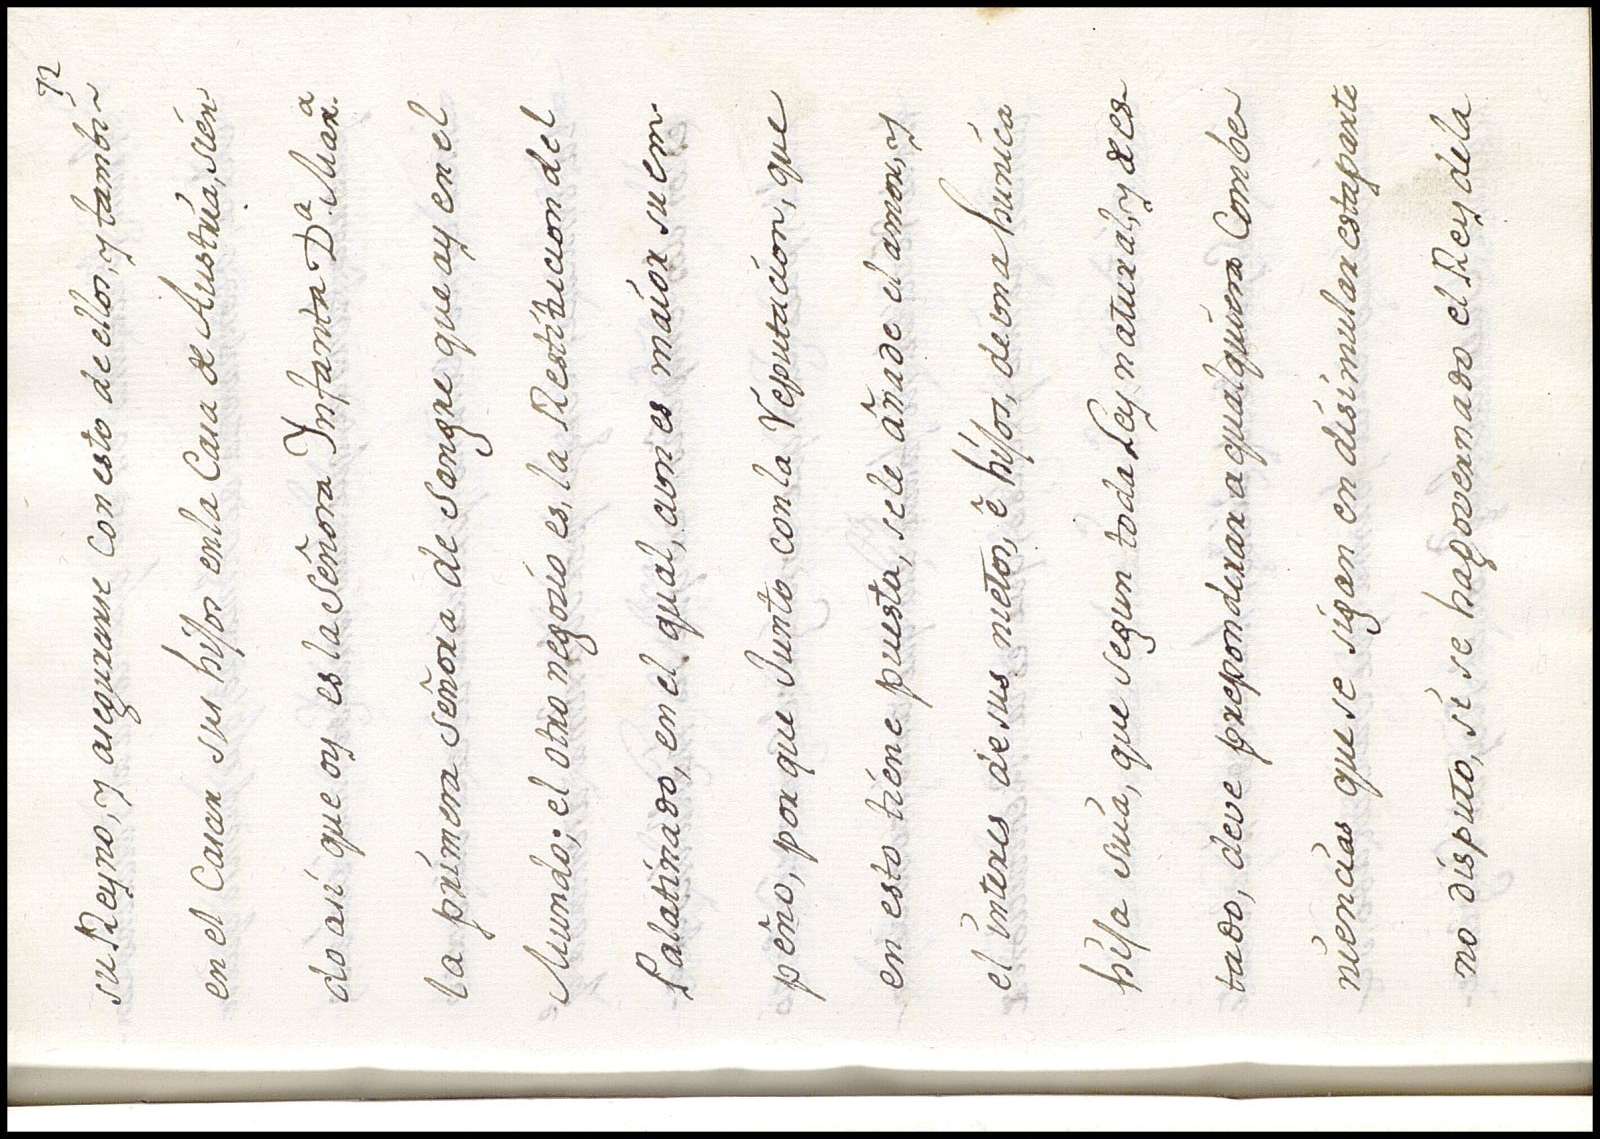 72
su Reyno, y asegurarse con esto de ellos, y tambien
en el Casar sus hijos en la Casa de Austria, sien
do asi que oy es la señora Infanta D.ª Mar.ª
la primera señora de sangre que ay en el
Mundo; el otro negozio es, la Restitucion del
Palatinado, en el qual, aun es maior su em
peño, por que Junto con la reputacion, que
en esto tiene puesta, sele añade el amor, y
el interes de sus nietos, è hijos, de vna hunica
hija suia, que segun toda Ley natural, y de es
tado, deve preponderar a qualquiera Combe
niencias que se sigan en disimular esta parte
no disputo, si se ha governado el Rey de la